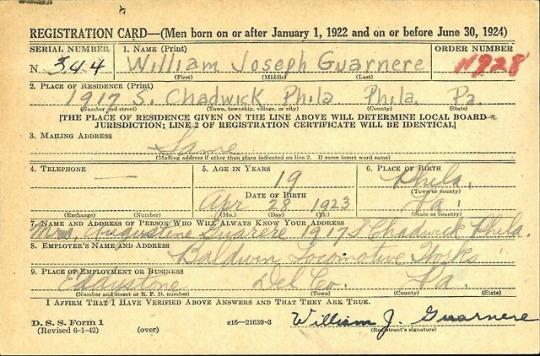 REGISTRATION CARD—(Men born on or after January 1, 1922 and on or before June 30, 1924)
SERIAL NUMBER 1. NAME (Print) ORDER NUMBER
N 344 William Joseph Guarnere 11928
(First) (Middle) (Last)
2. PLACE OF RESIDENCE (Print)
1917 S. Chadwick Phila Phila. Pa.
(Number and street) (Town, township, village, or city) (County) (State)
[THE PLACE OF RESIDENCE GIVEN ON THE LINE ABOVE WILL DETERMINE LOCAL BOARD
JURISDICTION; LINE 2 OF REGISTRATION CERTIFICATE WILL BE IDENTICAL]
3. MAILING ADDRESS
Same
(Mailing address if other than place indicated on line 2. If same insert word same)
4. TELEPHONE 5. AGE IN YEARS 6. PLACE OF BIRTH
— 19 Phila.
(Town or county)
DATE OF BIRTH
Apr 28 1923 Pa.
(Exchange) (Number) (Mo.) (Day) (Yr.) (State or country)
7. NAME AND ADDRESS OF PERSON WHO WILL ALWAYS KNOW YOUR ADDRESS
Mrs. Augustine 1917 S Chadwick Phila.
8. EMPLOYER'S NAME AND ADDRESS
Baldwin Locomotive Works
9. PLACE OF EMPLOYMENT OR BUSINESS
Eddystone Del Co. Pa.
(Number and street or R. F. D. number) (Town) (County) (State)
I AFFIRM THAT I HAVE VERIFIED ABOVE ANSWERS AND THAT THEY ARE TRUE.
D. S. S. Form 1
(Revised 6-1-42) (over) e16—21630-3 William J. Guarnere
(Registrant's signature)